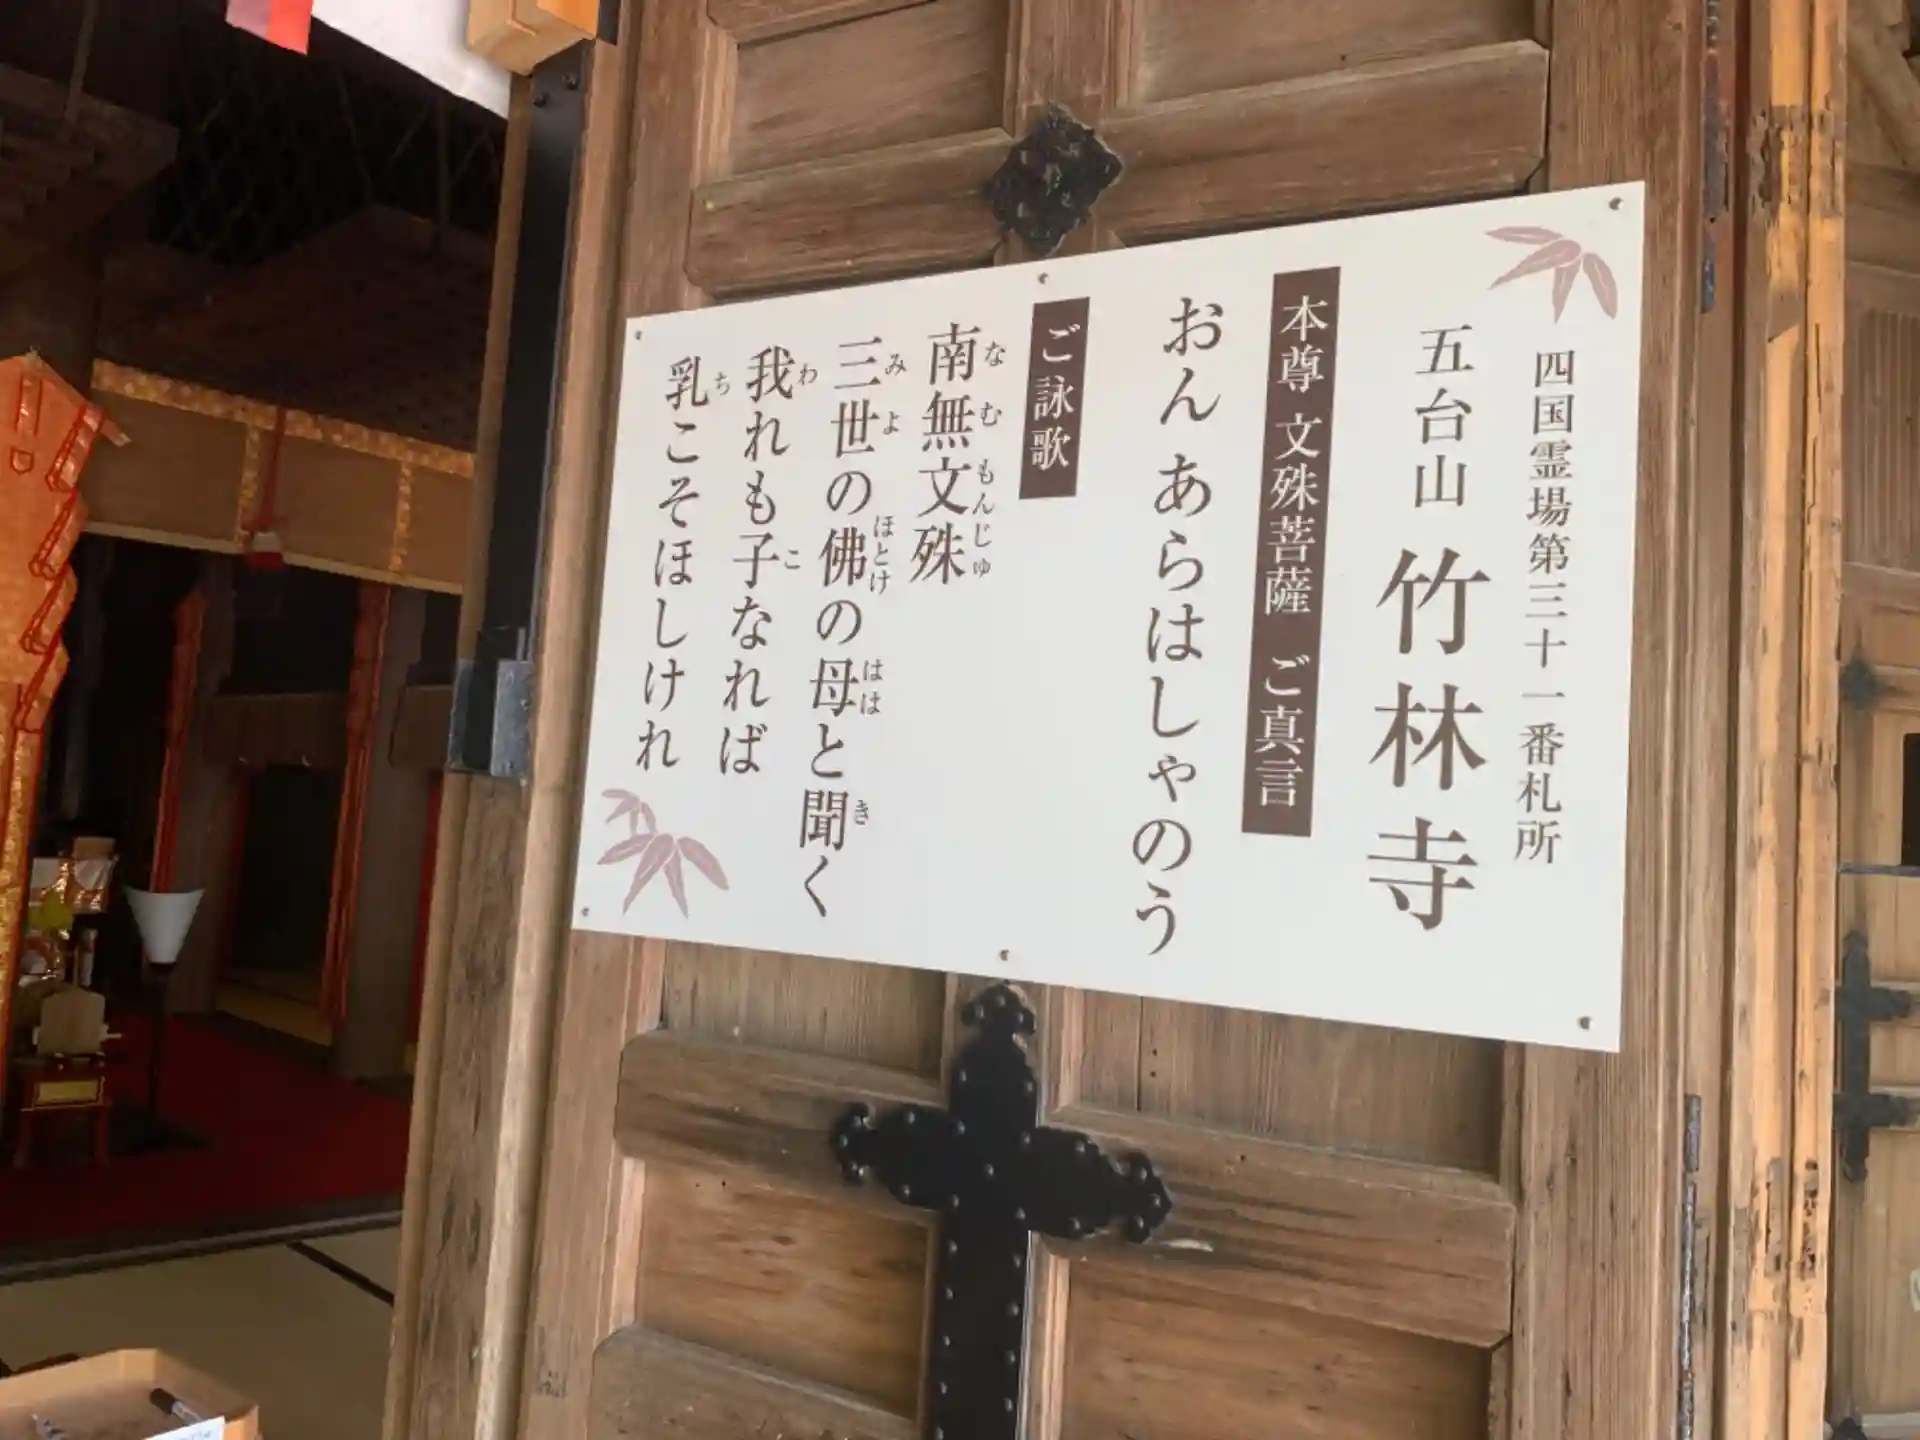 四国霊場第三十一番札所
五台山 竹林寺
本尊 文殊菩薩 ご真言
おん あらはしゃのう
ご詠歌
南無文殊
なむもんじゅ
三世の佛の母と聞く
みよほとけははき
我れも子なれば
わこ
乳こそほしけれ
ち